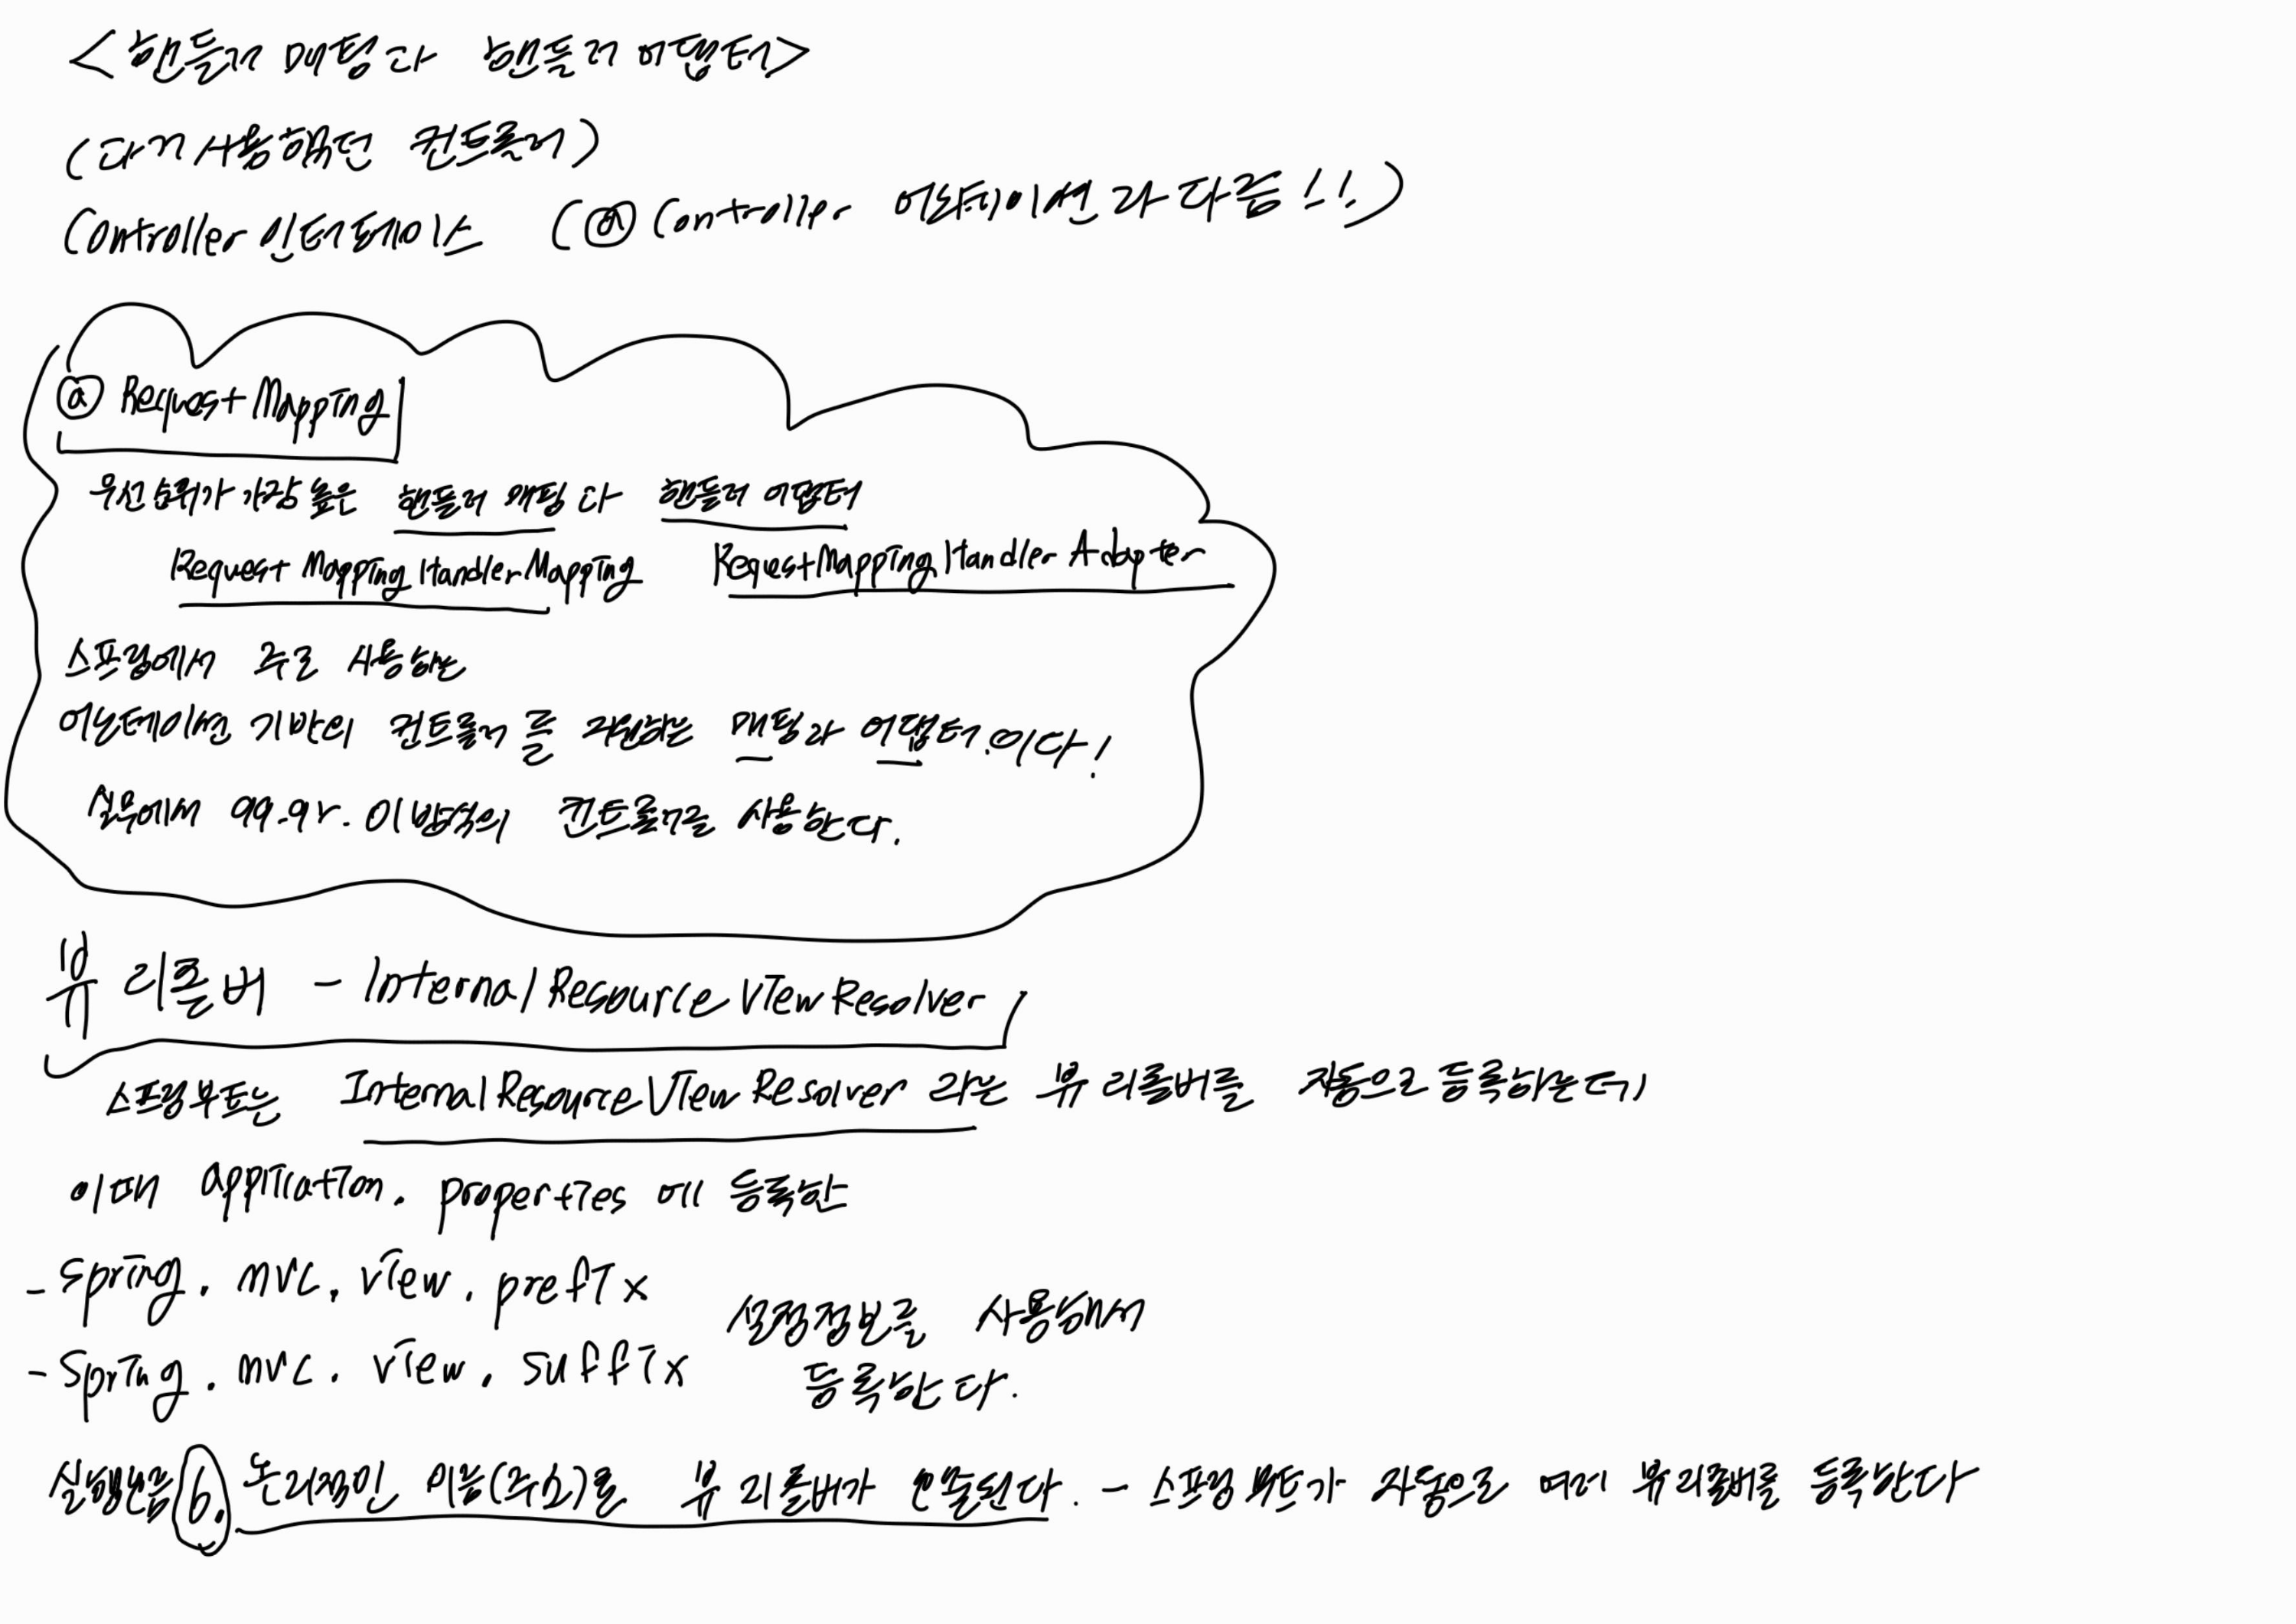 <핸들러 매핑과 핸들러 어댑터>
(과거 사용했던 컨트롤러)
Controller 인터페이스 (@Controller 어노테이션과 다름!!)
@RequestMapping
우선순위가 가장 높은 핸들러 매핑과 핸들러 어댑터
RequestMappingHandlerMapping RequestMappingHandlerAdapter
스프링에서 주로 사용하는
어노테이션 기반의 컨트롤러를 지원하는 매핑과 어댑터이다!
실무에서 99.9% 이 방식의 컨트롤러를 사용한다.
뷰 리졸버 - InternalResourceViewResolver
스프링부트는 InternalResourceViewResolver 라는 뷰 리졸버를 자동으로 등록하는데,
이때 application.properties에 등록한
- Spring.mvc.view.prefix
설정정보를 사용해서
- Spring.mvc.view.suffix
등록한다.
6. 논리적인 이름(주소)를 뷰 리졸버가 - 스프링 부트가 자동으로 여러 뷰 리졸버를 등록한다